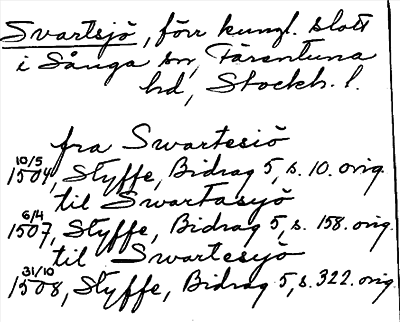 Svartsjö, förr kungl. slott
i Sånga sn, Färentuna
hd, Stockh. l.
fra Swartesiö
10/5
1504, Styffe, Bidrag 5, s. 10. orig.
til Swartasyö
6/4
1507, Styffe, Bidrag 5, s. 158. orig.
til Swartesyö
31/10
1508, Styffe, Bidrag 5, s. 322. orig.